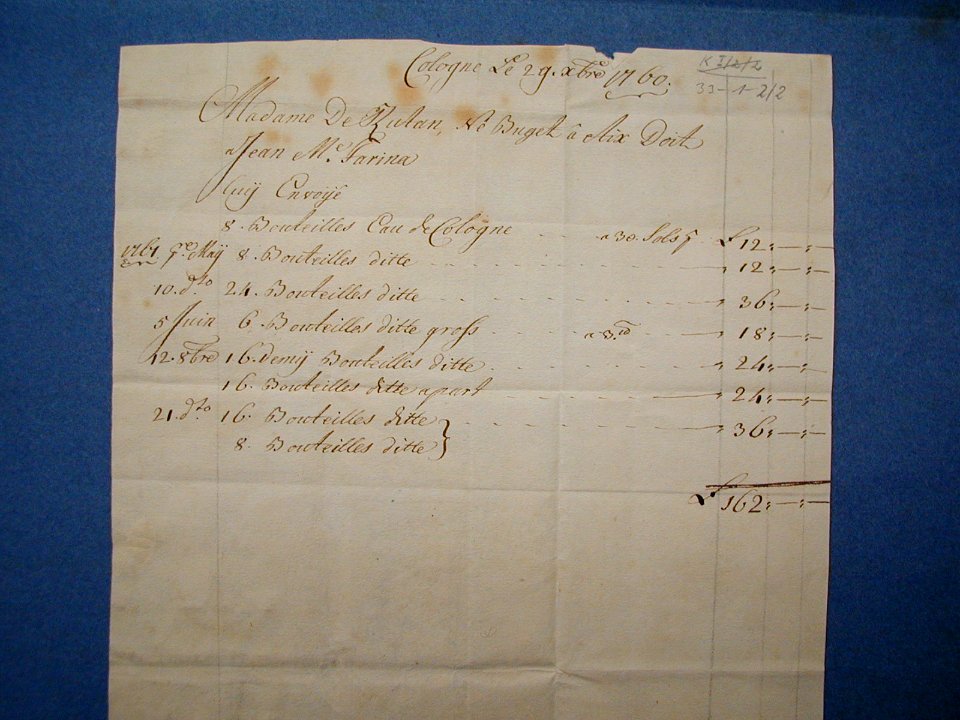 Cologne Le 29. Xbre 1760.
K I/2/2
33-1-2/2
Madame De Zutan, Né Buget à Aix Doit
a Jean M. Farina
luÿ Envoÿé
8. Bouteilles Eau de Cologne a 30. Sols £ 12 " — " —
1761 7. Maÿ 8. Bouteilles ditte " 12 " — " —
10. dto 24. Bouteilles ditte " 36 " — " —
5 Juin 6. Bouteilles ditte gross " 18 " — " —
12. 8bre 16. demÿ Bouteilles ditte " 24 " — " —
16. Bouteilles ditte apart " 24 " — " —
21. dto 16. Bouteilles ditte } " 36 " — " —
8. Bouteilles ditte
£ 162 " — " —